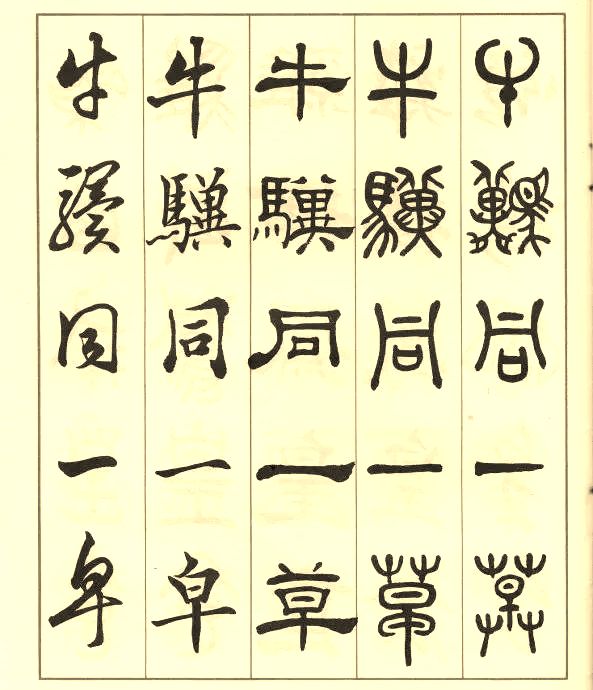 牛驥同一草
牛驥同一草
牛驥同一草
牛驥同一皁
牛驥同一皁